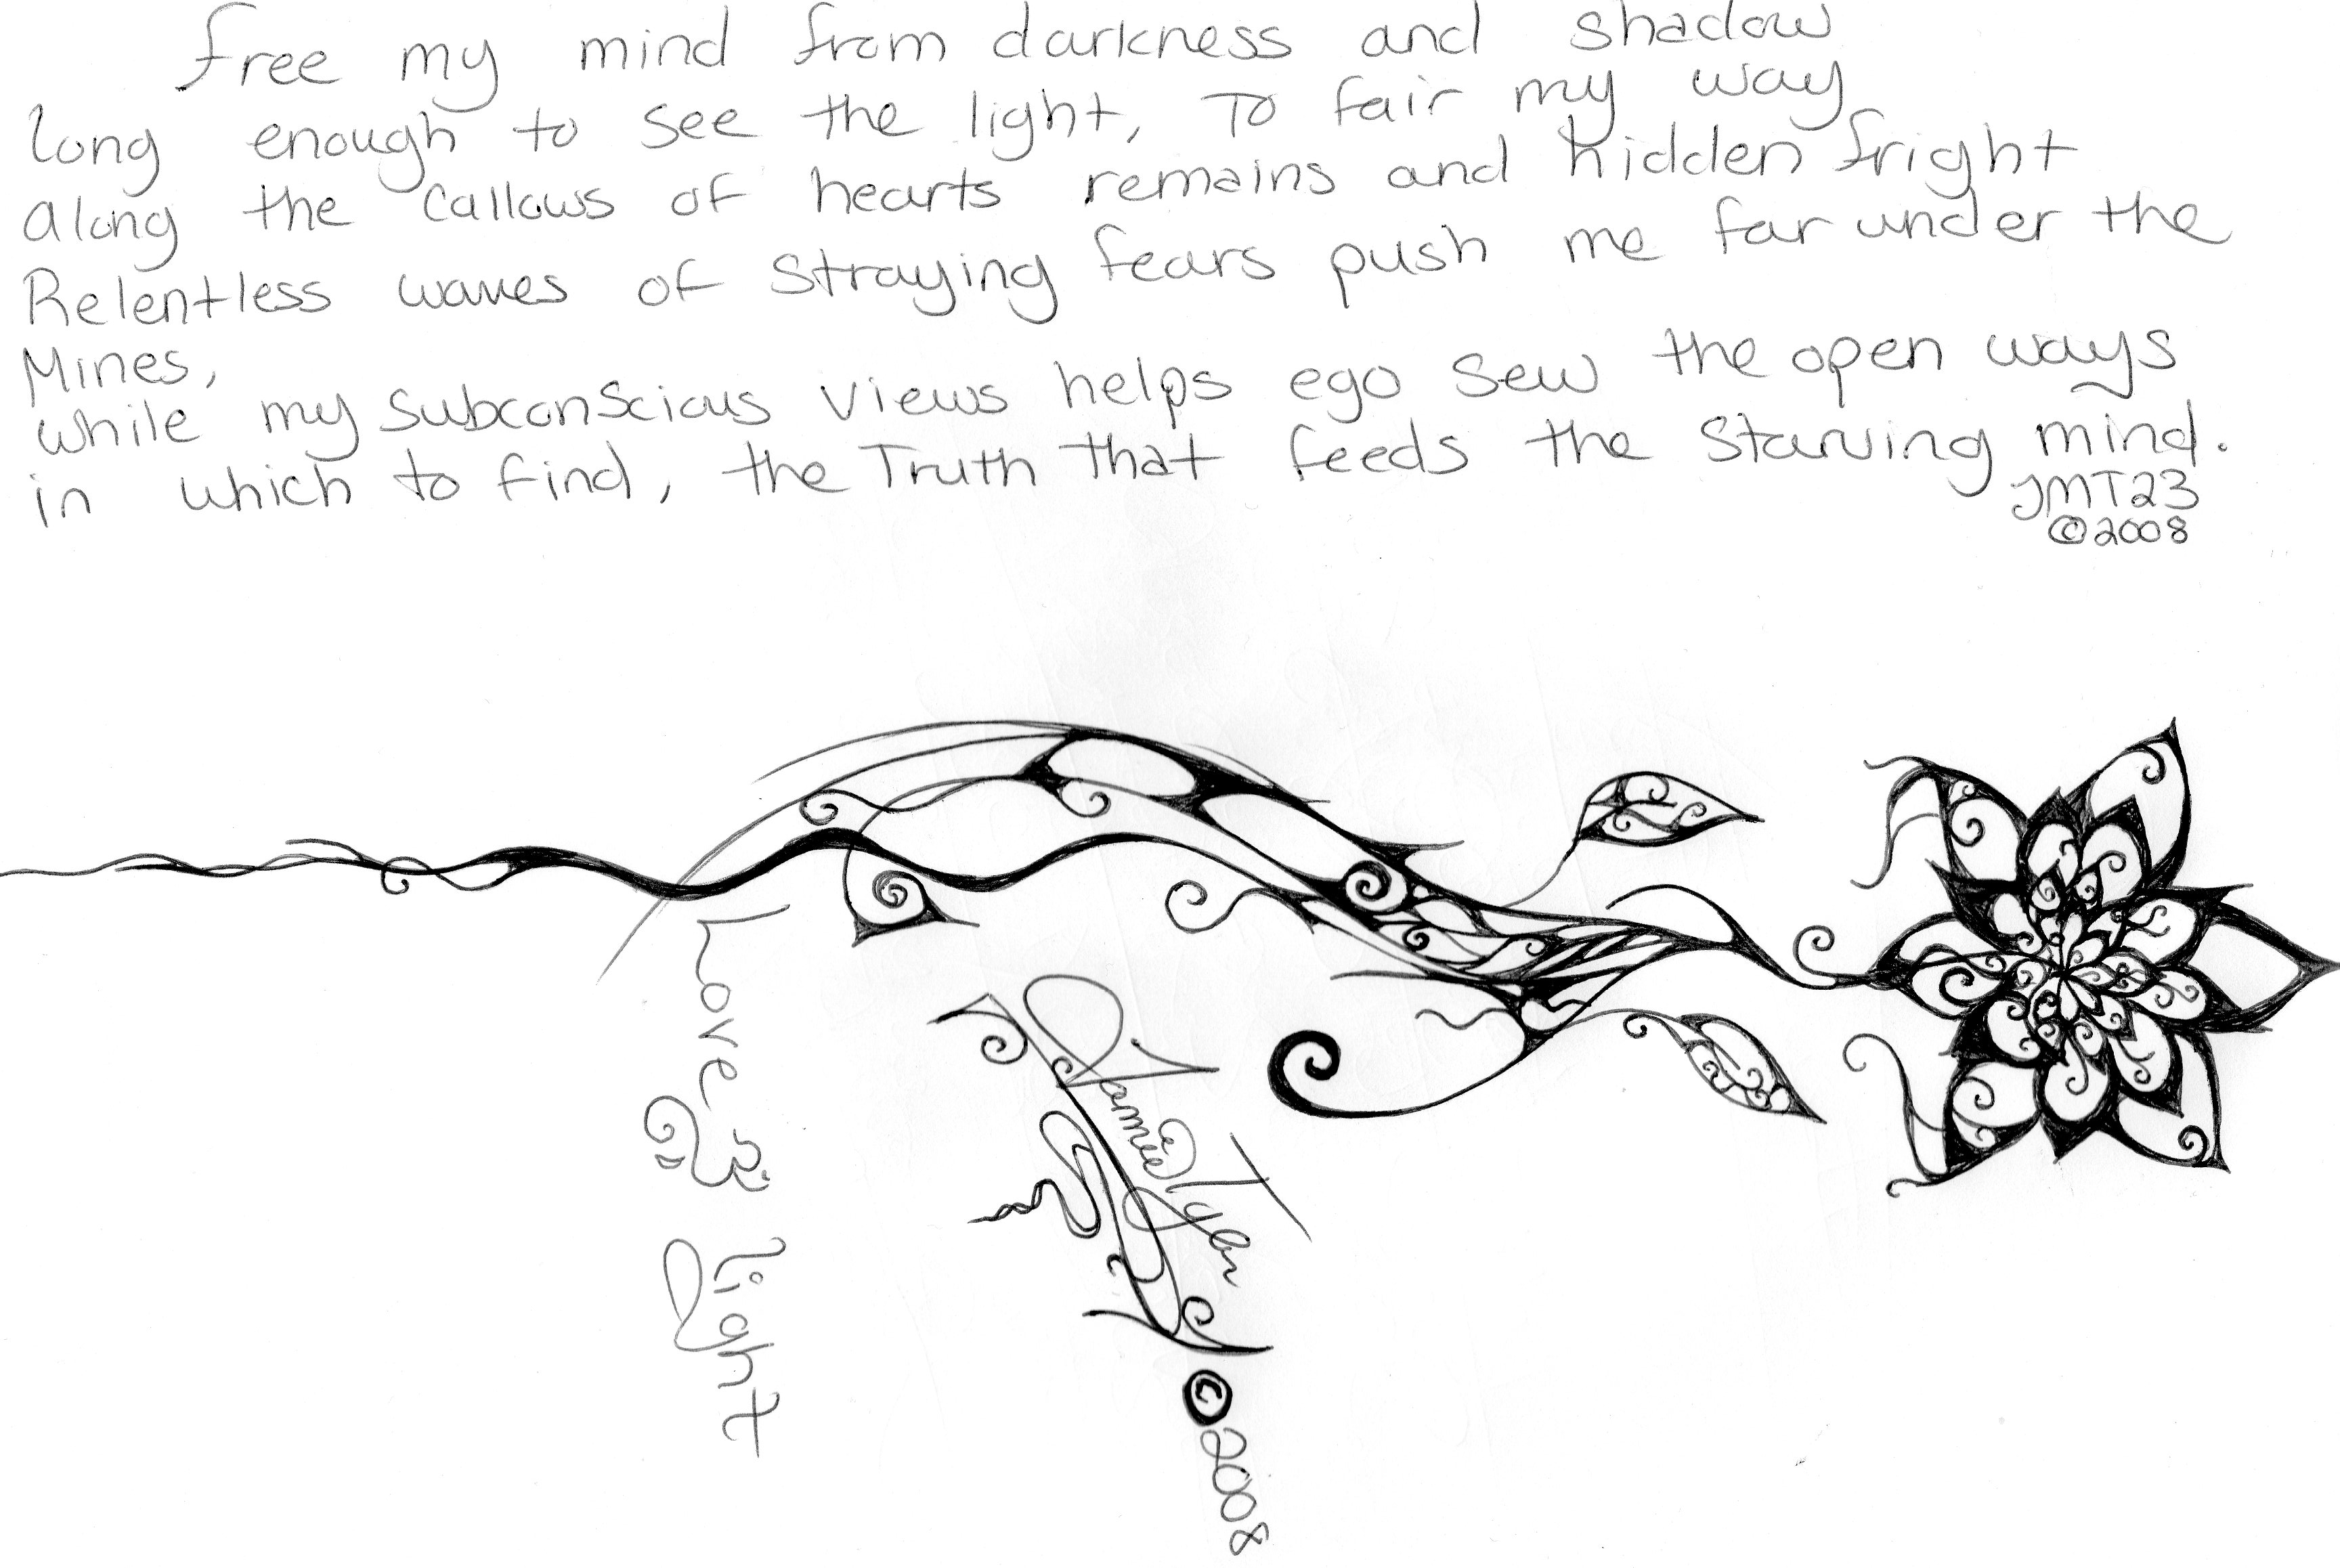 free my mind from darkness and shadow
long enough to see the light, To fair my way
along the callows of hearts remains and hidden fright
Relentless waves of straying fears push me far under the
Mines,
while my subconscious views helps ego sew the open ways
in which to find, the Truth that feeds the starving mind.
JMT23
©2008
Love & Light
Jamie Tyler
©2008